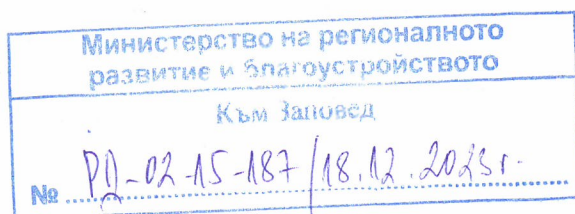 Министерство на регионалното
развитие и благоустройството
Към Заповед
№ РД-02-15-187/18.12.2023г.